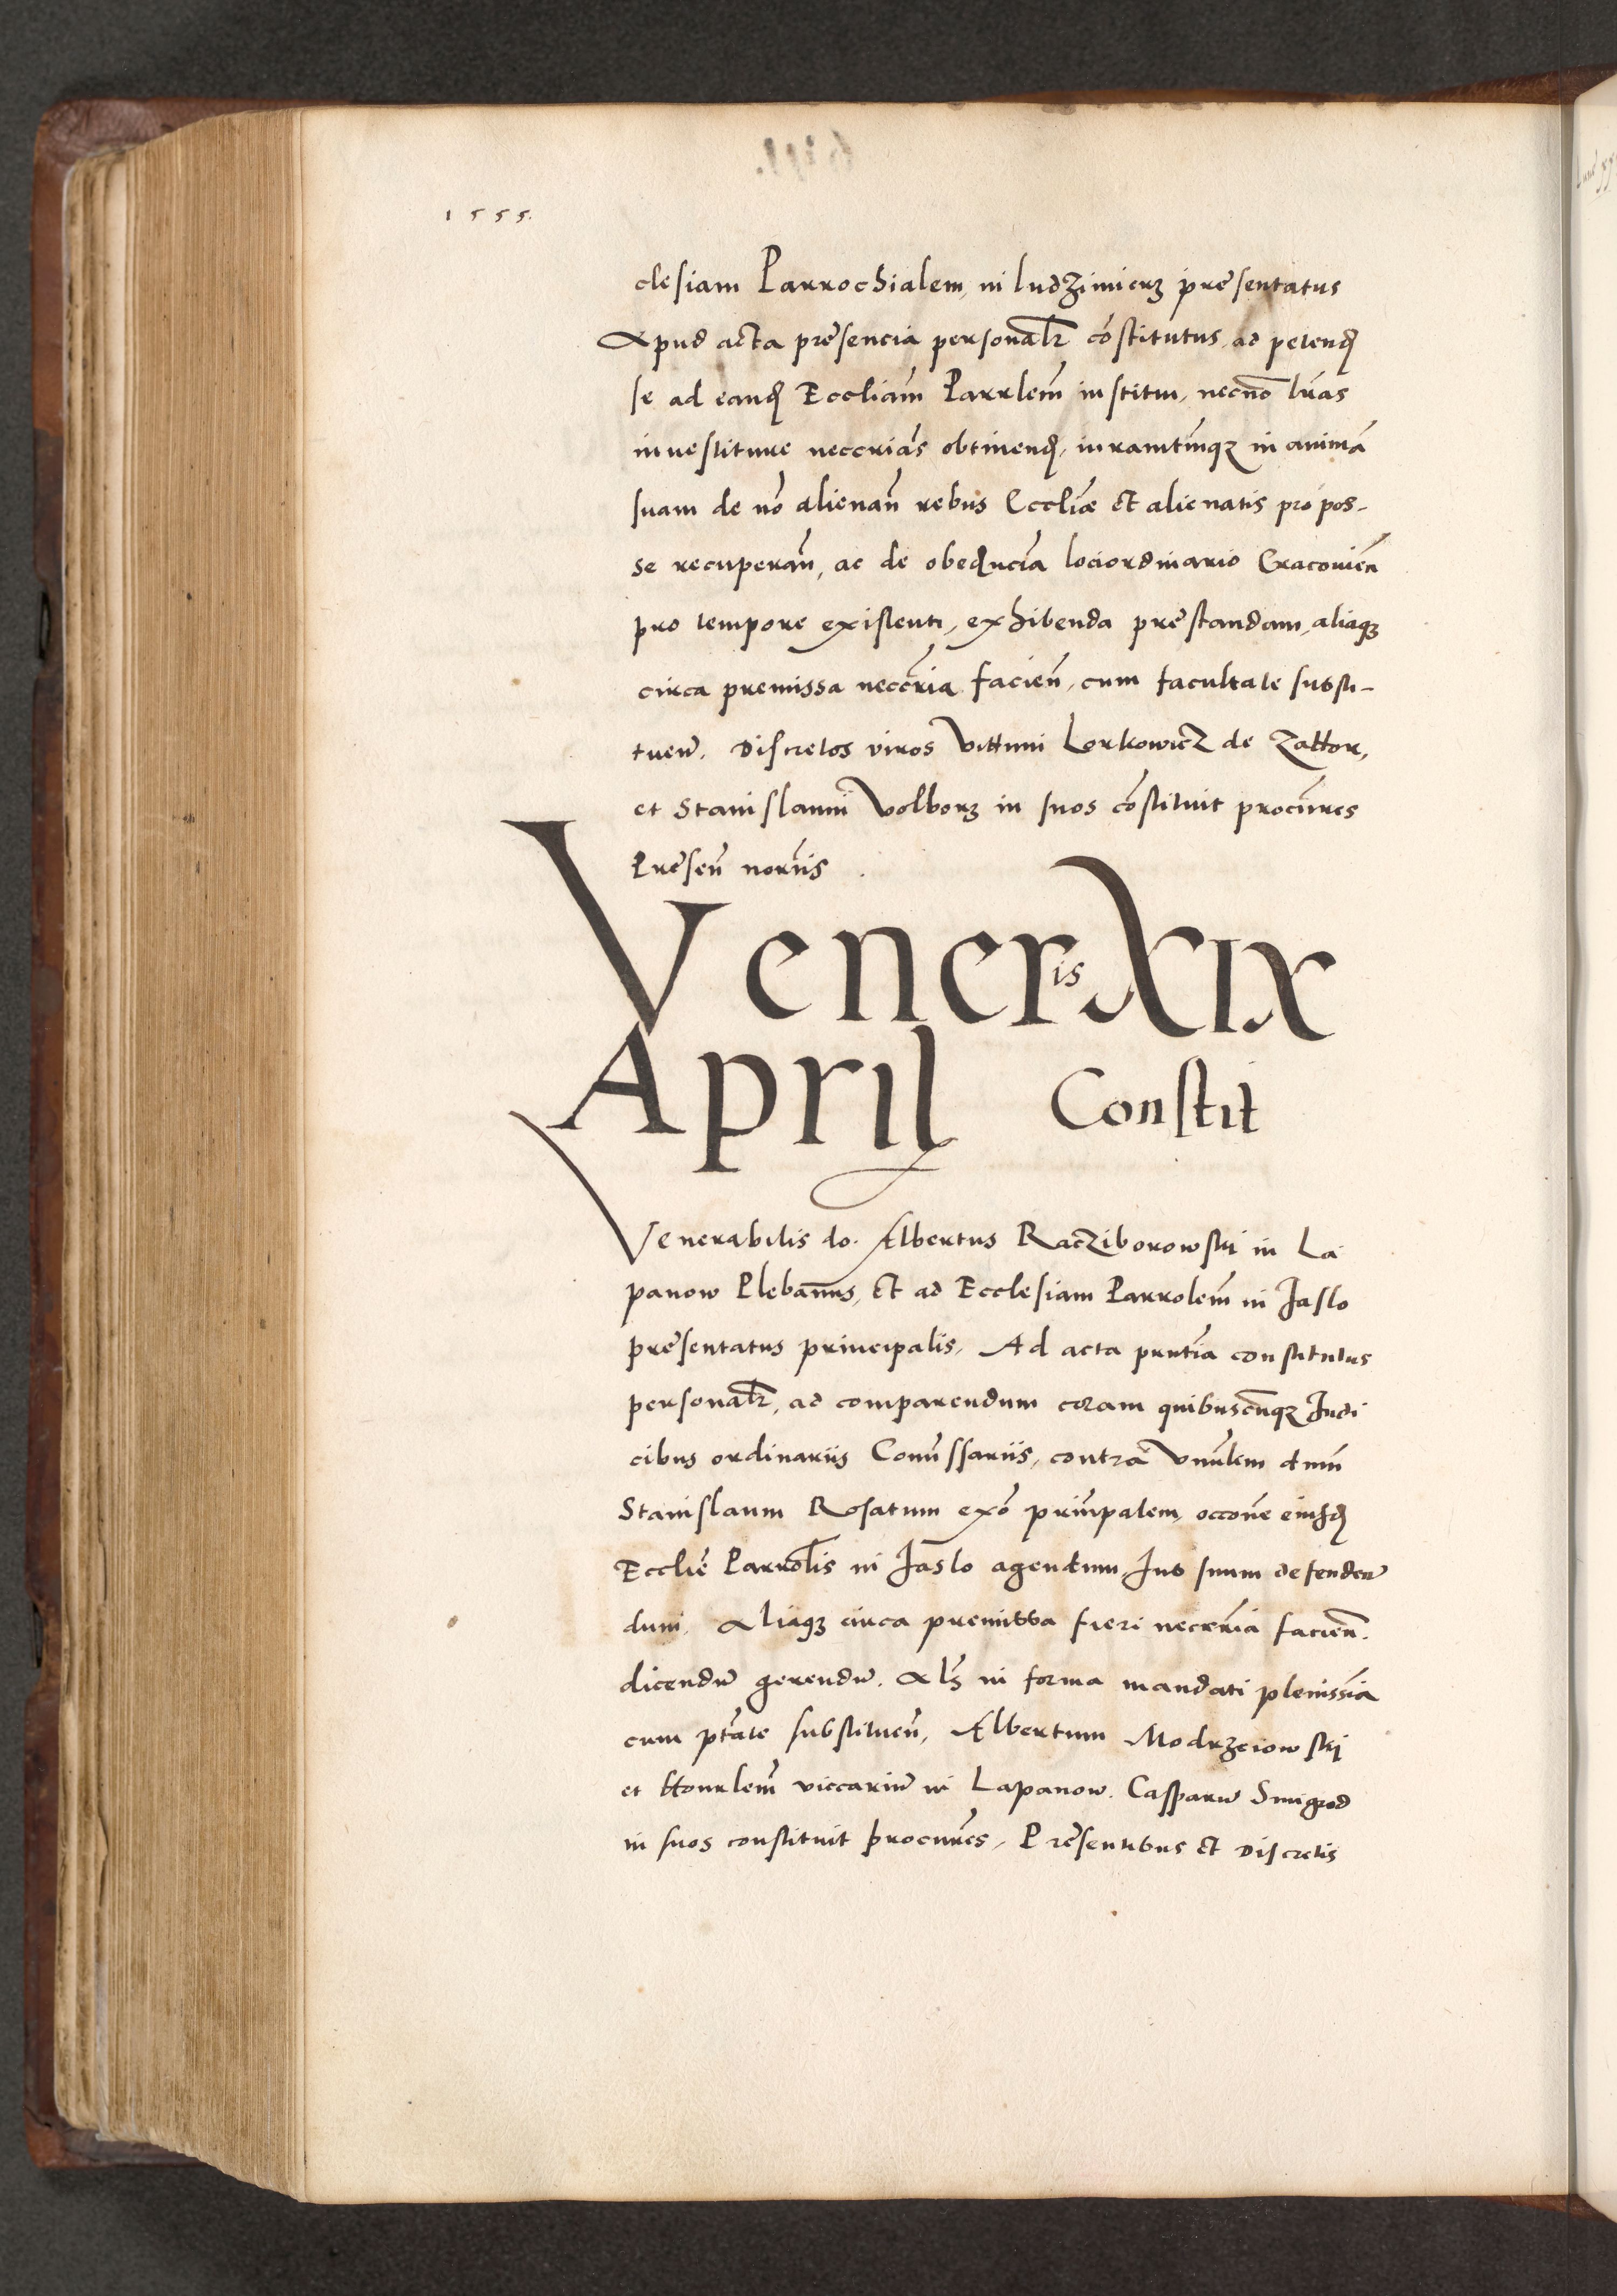 1555.
clesiam Parrochialem, in ludzimierz presentatus
Apud acta presencia personalr constitutus, ad petend
se ad eand Eccliam Parrlem institui, necno lras
inuestiture neccrias obtinend, iuramtmqz in anima
suam de no alienan rebus Eccliæ et alienatis pro pos-
se recuperan, ac de obedncia lociordinario Cracouien
pro tempore existenti, exhibenda prestandam, aliaqz
circa premissa neccria facien, cum facultate substi-
tuen. Discretos viros Lorkowicz de Zattor,
et Stanislaum Volborz in suos constituit procures
Presen noriis.
Veneris XIX
April Constit
Venerabilis do. Albertus Racziborowski in La
panow Plebanus, Et ad Ecclesiam Parrolem in Jaslo
presentatus principalis, Ad acta prntia constitutus
personalr, ad comparendum coram quibuscunqz Judi
cibus ordinariis Comissariis, contra Vnrlem dmn
Stanislaum Rosatum exo prinpalem, occone eiusd
Ecclie Parrolis in Jaslo agendum, Jus suum defenden
dum, Aliaqz circa premissa fieri necrria facien.
dicendu gerendu. Als in forma mandati plenissia
cum ptate substituen, Albertum Modrzeiowski
et Honrlem viccariu in Lapanow. Casparu Smigrod
in suos constituit procures, Presentibus et Discretis